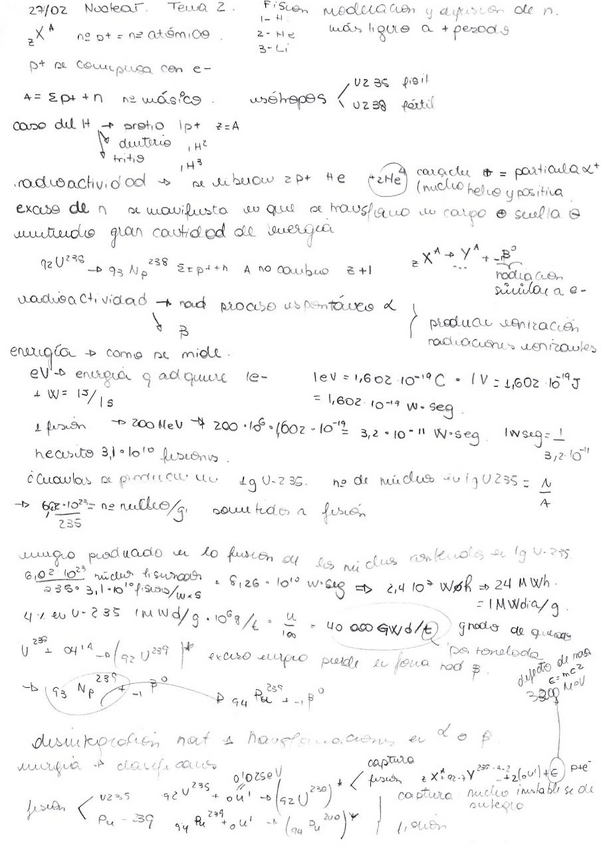 27/02 Nuclear. Tema 2. Fision moderación y difusión de n.
zX^A nº p+ = nº atómico. 1- H. más ligero a + pesado
2- He
3- Li
p+ se compensa con e-
A = Σp+ + n nº másico. isótopos U235 fisil
U238 fértil
caso del H → protio 1p+ z=A
deuterio 1H^2
tritio 1H^3
radioactividad → se liberan 2p+ He +2He^4 carácter + = particula α+
(nucleo helio y positiva
exceso de n se manifiesta en que se transforma en carga ⊕ y ⊖
emitiendo gran cantidad de energía
92U^239 → 93Np^238 Σ=p++n A no cambia z+1 zX^A → Y^A + -β^0
radiación
similar a e-
radioactividad → nat proceso espontáneo α
β
produce ionización
radiaciones ionizantes
energía → como se mide.
eV → energía q adquiere 1e- 1eV = 1,602·10^-19 C · 1V = 1,602·10^-19 J
1 W = 1J/1s = 1,602·10^-19 W·seg.
1 fisión → 200 MeV → 200·10^6·1,602·10^-19 = 3,2·10^-11 W·seg. 1Wseg = 1/3,2·10^-11
necesito 3,1·10^10 fisiones.
¿cuantas se producen en 1g U-235. nº de núcleos en 1g U235 = N/A
→ 6,02·10^23/235 = nº nucleo/g. sometidos a fisión
energia producida en la fision de los núcleos contenidos en 1g U-235
6,02 10^23 núcleos fisionados / 235·3,1·10^10 fisions/W×s = 8,26·10^10 W·seg ⇒ 2,4 10^7 Wh ⇒ 24 MWh.
= 1MWdia/g.
4% en U-235 1MWd/g · 10^6 g/t = 4/100 = 40 000 GWd/t grado de quemado
por tonelada
U^238 + 0n^1 → (92U^239)* exceso energia pierde en forma rad β.
defecto de masa
E=mc2
MeV
→ 93Np^239 + -1β^0 → 94Pu^239 + -1β^0
desintegración nat → transformaciones en α o β
energía → clasificamos
0,025eV
fisión U235 92U^235 + 0n^1 → (92U^236)* captura
fision
Pu-239 94Pu^239 + 0n^1 → (94Pu^240)*
captura nucleo inestable se desintegra
fisión